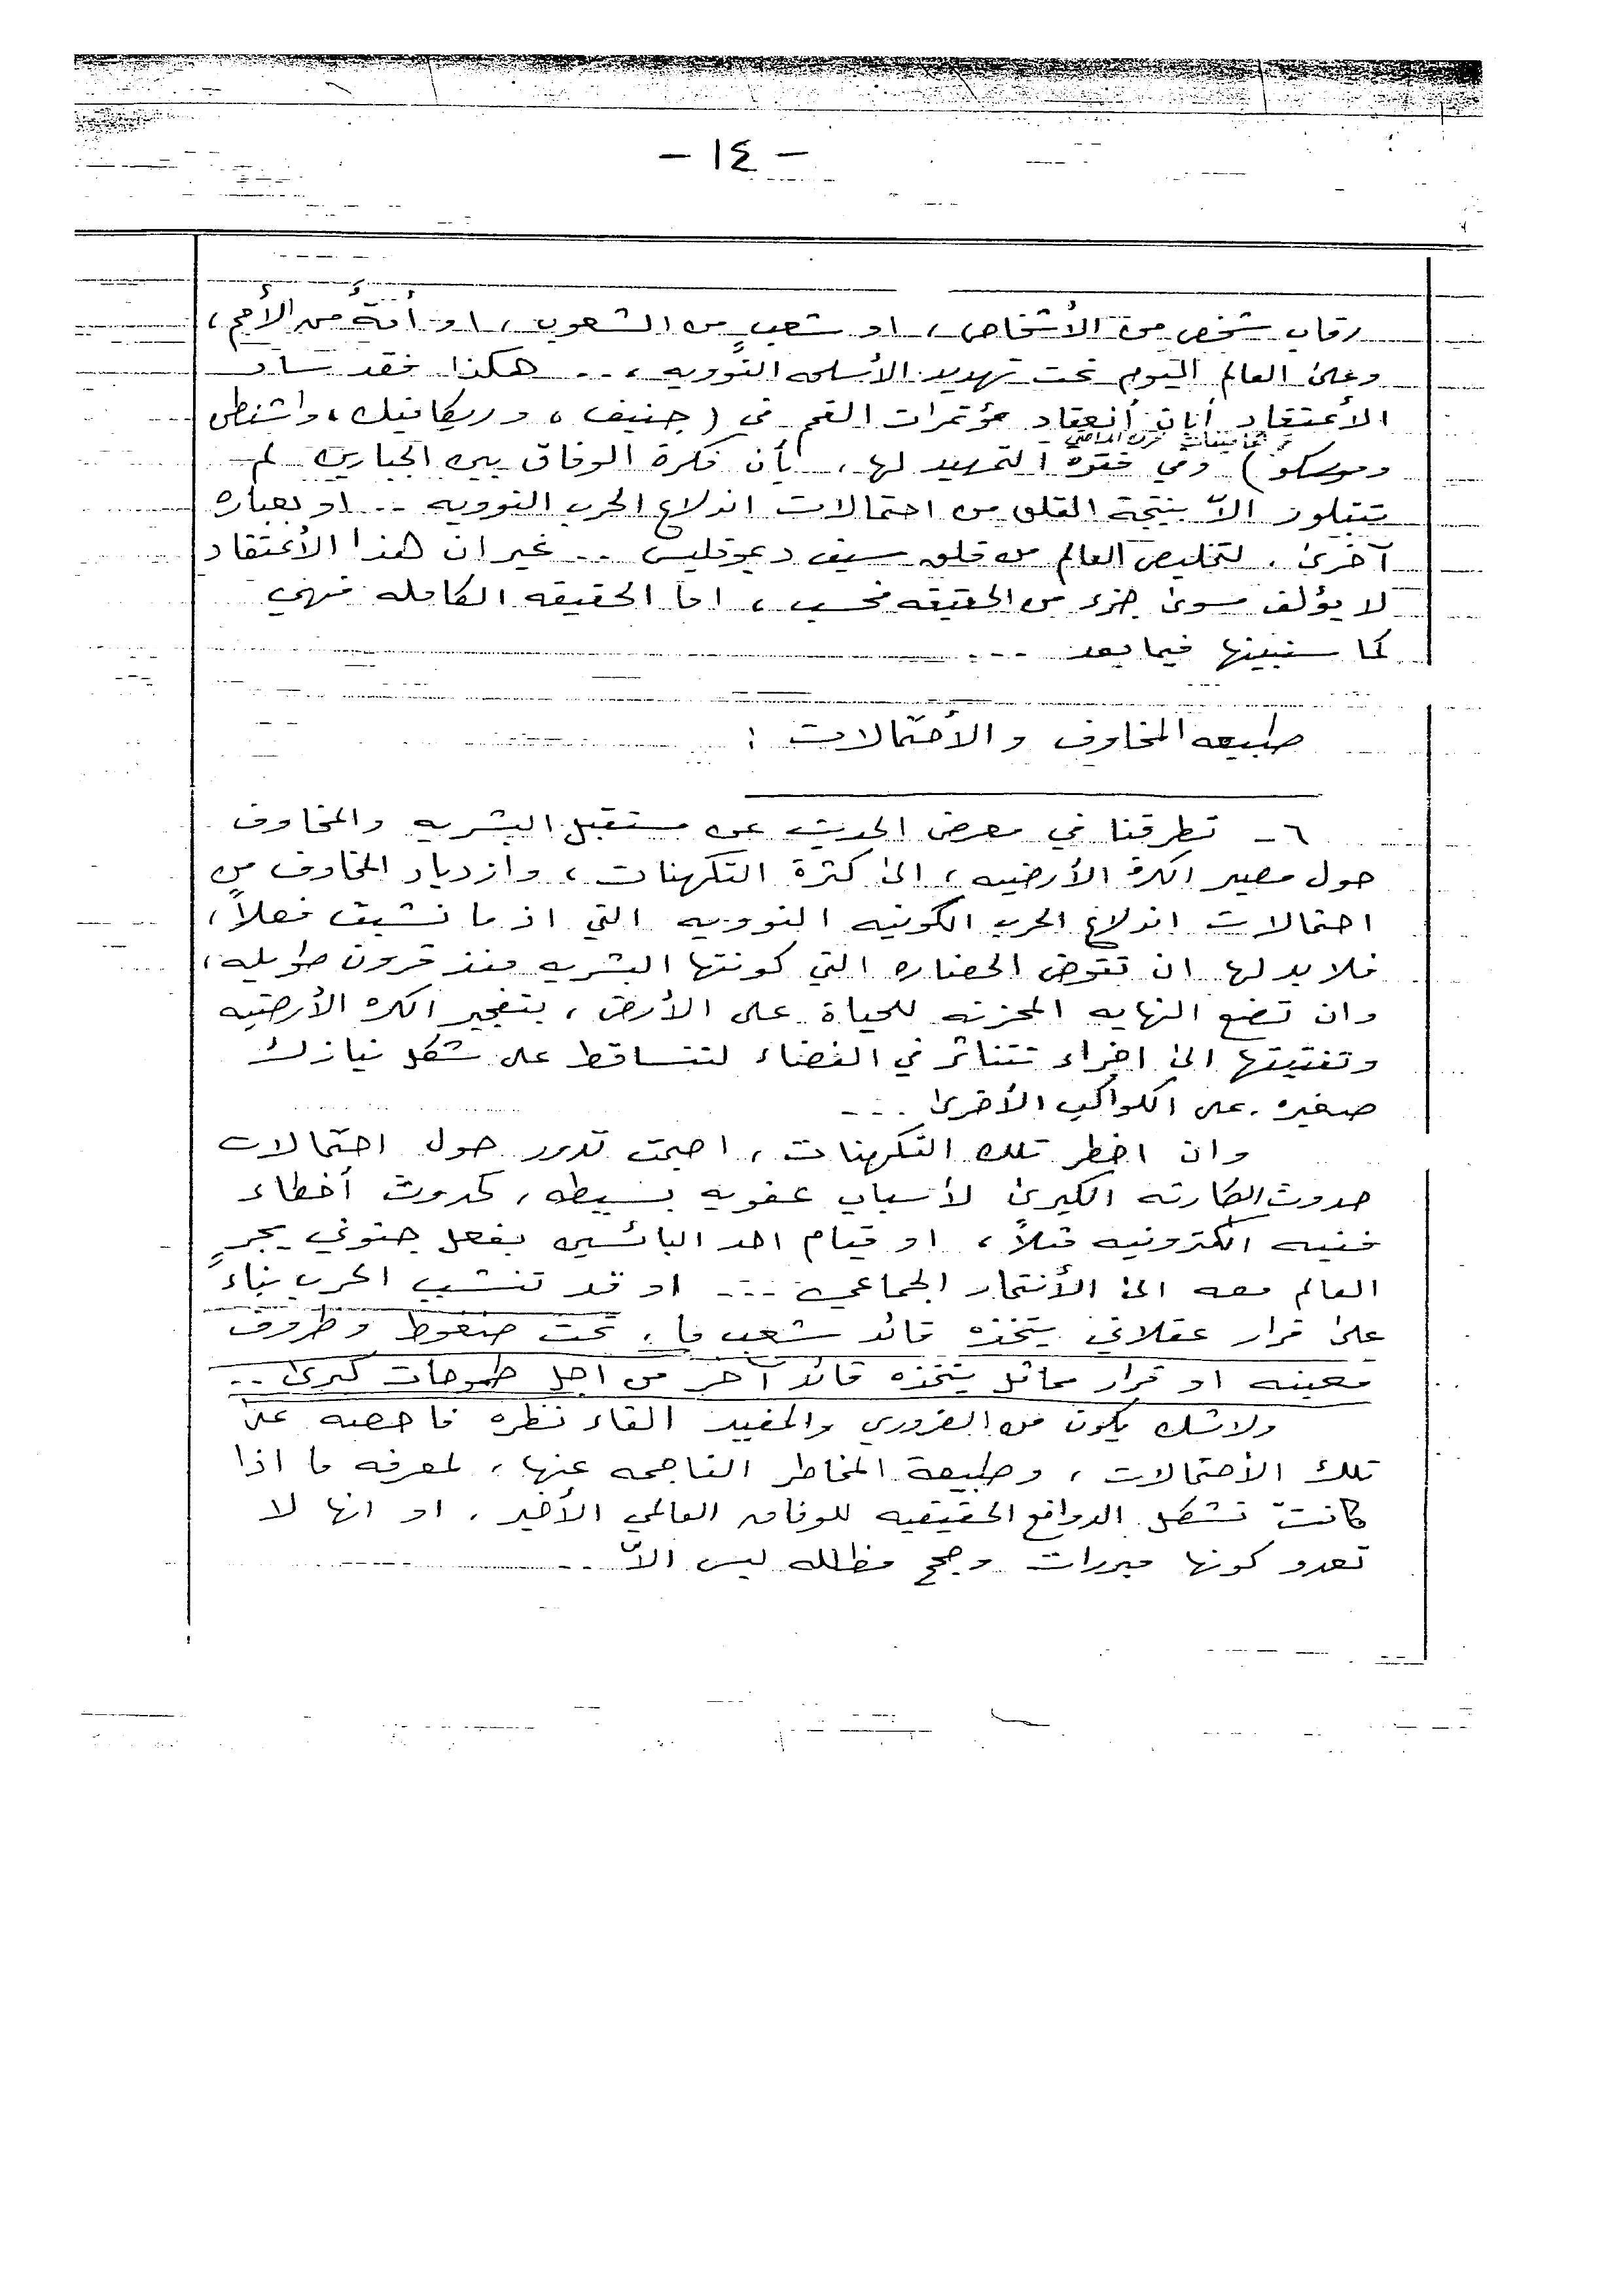 - ١٤ -
رقاب شخص من الأشخاص، او شعبٍ من الشعوب، او أمةً من الأمم،
وعلى العالم اليوم تحت تهديد الأسلحه النوويه، .. هكذا فقد ساد
الأعتقاد أبان أنعقاد مؤتمرات القمم في (جنيف، وريكافيك، واشنطن
ثمانينات القرن الماضي
وموسكو) وفي فترة التمهيد لها، بأن فكرة الوفاق بين الجبارين لم
تتبلور الاّ نتيجة القلق من احتمالات اندلاع الحرب النوويه .. او بعباره
آخرى. لتخليص العالم من قلق سيف ديموقليس .. غير ان هذا الأعتقاد
لا يؤلف سوى جزء من الحقيقه فحسب، اما الحقيقه الكامله فهي
كما سنبينها فيما بعد ...
طبيعه المخاوف والأحتمالات :
٦ - تطرقنا في معرض الحديث عن مستقبل البشريه والمخاوف
حول مصير الكرة الأرضيه، الى كثرة التكهنات، وازدياد المخاوف من
احتمالات اندلاع الحرب الكونيه النوويه التي اذ ما نشبت فعلاً،
فلا بد لها ان تقوض الحضاره التي كونتها البشريه منذ قرون طويله،
وان تضع النهايه المحزنه للحياة على الأرض، بتفجير الكره الأرضيه
وتفتيتها الى اجزاء تتناثر في الفضاء لتتساقط على شكل نيازك
صغيره على الكواكب الأخرى ...
وان اخطر تلك التكهنات، اصبحت تدور حول احتمالات
حدوث الكارثه الكبرى لأسباب عفويه بسيطه، كحدوث أخطاء
فنيه الكترونيه مثلاً، او قيام احد اليائسين بفعل جنوني يجرٍ
العالم معه الى الأنتحار الجماعي ... او قد تنشب الحرب بناءً
على قرار عقلاني يتخذه قائد شعب ما، تحت ضغوط وظروف
معينه او قرار مماثل يتخذه قائد آخر من اجل طموحات كبرى ..
ولاشك يكون من الضروري والمفيد القاء نظره فاحصه على
تلك الأحتمالات، وطبيعة المخاطر الناجمه عنها، لمعرفه ما اذا
كانت تشكل الدوافع الحقيقيه للوفاق العالمي الأخير، او انها لا
تعدو كونها مبررات وحجج مظلله ليس الاّ ..